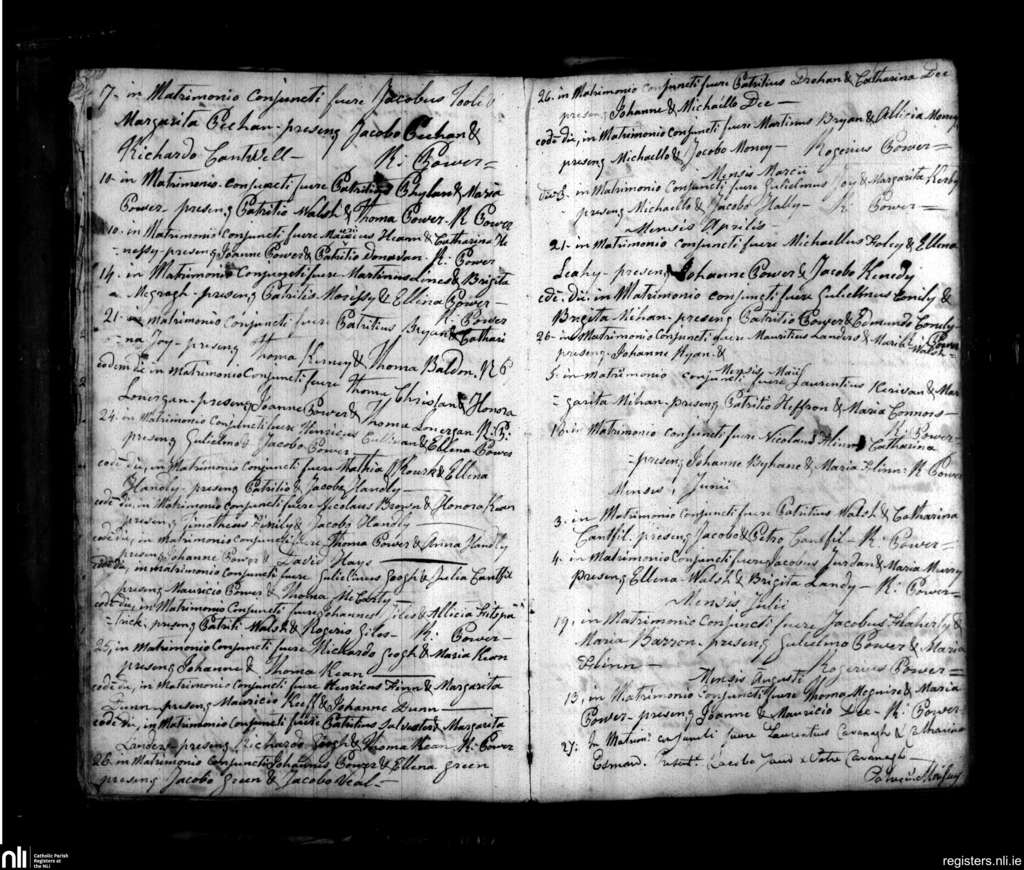 7- in Matrimonio Conjuncti fuere Jacobus
Margarita Pechan - presen Jacobo Pechan &
Richardo Cantwell - R: Power =
10- in Matrimonio conjuncti fuere Patritius Phylan & Maria
Power - presen Patritio Walsh & Thoma Power - R Power
10- in Matrimonio Conjuncti fuere Hearn & Catharina He
nessy - presen Joanne Power & Patritio Donavan - R: Power
14. in Matrimonio Conjuncti fuere Martinus Lines & Brigita
a Megragh - presen Patritio Morissy & Ellena Power -
R: Power
21- in matrimonio conjuncti fuere Patritius Bryan & Cathari
na Joy - presen Thoma Kerney & Thoma Baldon, R P
eodem die in Matrimonio Conjuncti fuere Thoma & Honora
Lonergan - presen Joanne Power & Thoma Lonergan R: P:
24. in Matrimonio Conjuncti fuere Henricus Sullivan & Ellena Power
presen Gulielmo & Jacobo Power -
eodē die, in Matrimonio Conjuncti fuere Mathia & Ellena
Handly - presen Patritio & Jacobo Handly -
eodē die, in Matrimonio Conjuncti fuere Nicolaus Brown & Honora Kean
presen Timotheus & Jacobo Handly
eodē die, in Matrimonio conjuncti fuere Thoma Power & Anna Handly
presen Johanne Power & David Hays
eodē die, in matrimonio conjuncti fuere Gulielmus Gogh & Julia Cantfil
presen Mauricio Power & Thoma McCarty -
eodē die, in Matrimonio Conjuncti fuere Johannes Giles & Allicia Fitspa
trick - presen Patriti Walsh & Rogerio Giles - R: Power -
25, in Matrimonio Conjuncti fuere Richardo Gogh & Maria Kean
presen Johanne & Thoma Kean
eodē die, in Matrimonio Conjuncti fuere Henricus Flinn & Margarita
Dunn - presen Mauricio Keeff & Johanne Dunn
eodē die, in Matrimonio Conjuncti fuere Patritius Salvester & Margarita
Landers - presen Richardo Gogh & Thoma Kean R: Power
26- in Matrimonio Conjuncti Johannes Power & Ellena Green
presen Jacobo Green & Jacobo Veal -
26- in Matrimonio Conjuncti fuere Patritius Drohan & Catharina Dee
presen Johanne & Michaello Dee -
eodē die, in Matrimonio Conjuncti fuere Martinus Bryan & Allicia Money
presen Michaello & Jacobo Money - Rogerius Power =
Mensis Marcii
die 3. in Matrimonio Conjuncti fuere Gulielmus Joy & Margarita Kirby
- presen Michaello & Jacobo Hally - R: Power =
Mensis Aprilis -
21- in Matrimonio Conjuncti fuere Michaellus Foley & Ellena
Leahy - presen Johanne Power & Jacobo Kenedy
eodē. Die. in Matrimonio conjuncti fuere Gulielmus Conily &
Brigita Mihan - presen Patritio Power & Edmundo Conily
26- in Matrimonio Conjuncti fuere Mauritius Landers & Maria Walsh -
presen - Johanne Ryan &
Mensis Maii
5. in matrimonio conjuncti fuere Laurentius Kerivan & Mar
garita Mihan - presen Patritio Heffron & Maria Connors -
R: Power -
18- in Matrimonio conjuncti fuere Nicolaus Flinn & Catharina
- presen Johanne & Maria Flinn: R. Power
Mensis Junii
3. in Matrimonio Conjuncti fuere Patritius Walsh & Catharina
Cantfil. presen Jacobo & Petro Cantfil - R: Power =
4. in Matrimonio Conjuncti fuere Jacobus Jurdan & Maria Murry
presen Ellena Walsh & Brigita Landy - R: Power =
Mensis Julii
19, in Matrimonio Conjuncti fuere Jacobus Flaherty &
Maria Barron - presen Gulielmo Power & Maria
Flinn - Rogerius Power =
Mensis Augusti
13, in Matrimonio conjuncti fuere Thoma Meguire & Maria
Power - presen Joanne & Mauricio Dee - R: Power
27: In Matrim: conjuncti fuere Laurentius Cavanagh &
Esmard. Present. Jacobo & Petro Cavanagh -
nli Catholic Parish
Registers at
the NLI
registers.nli.ie